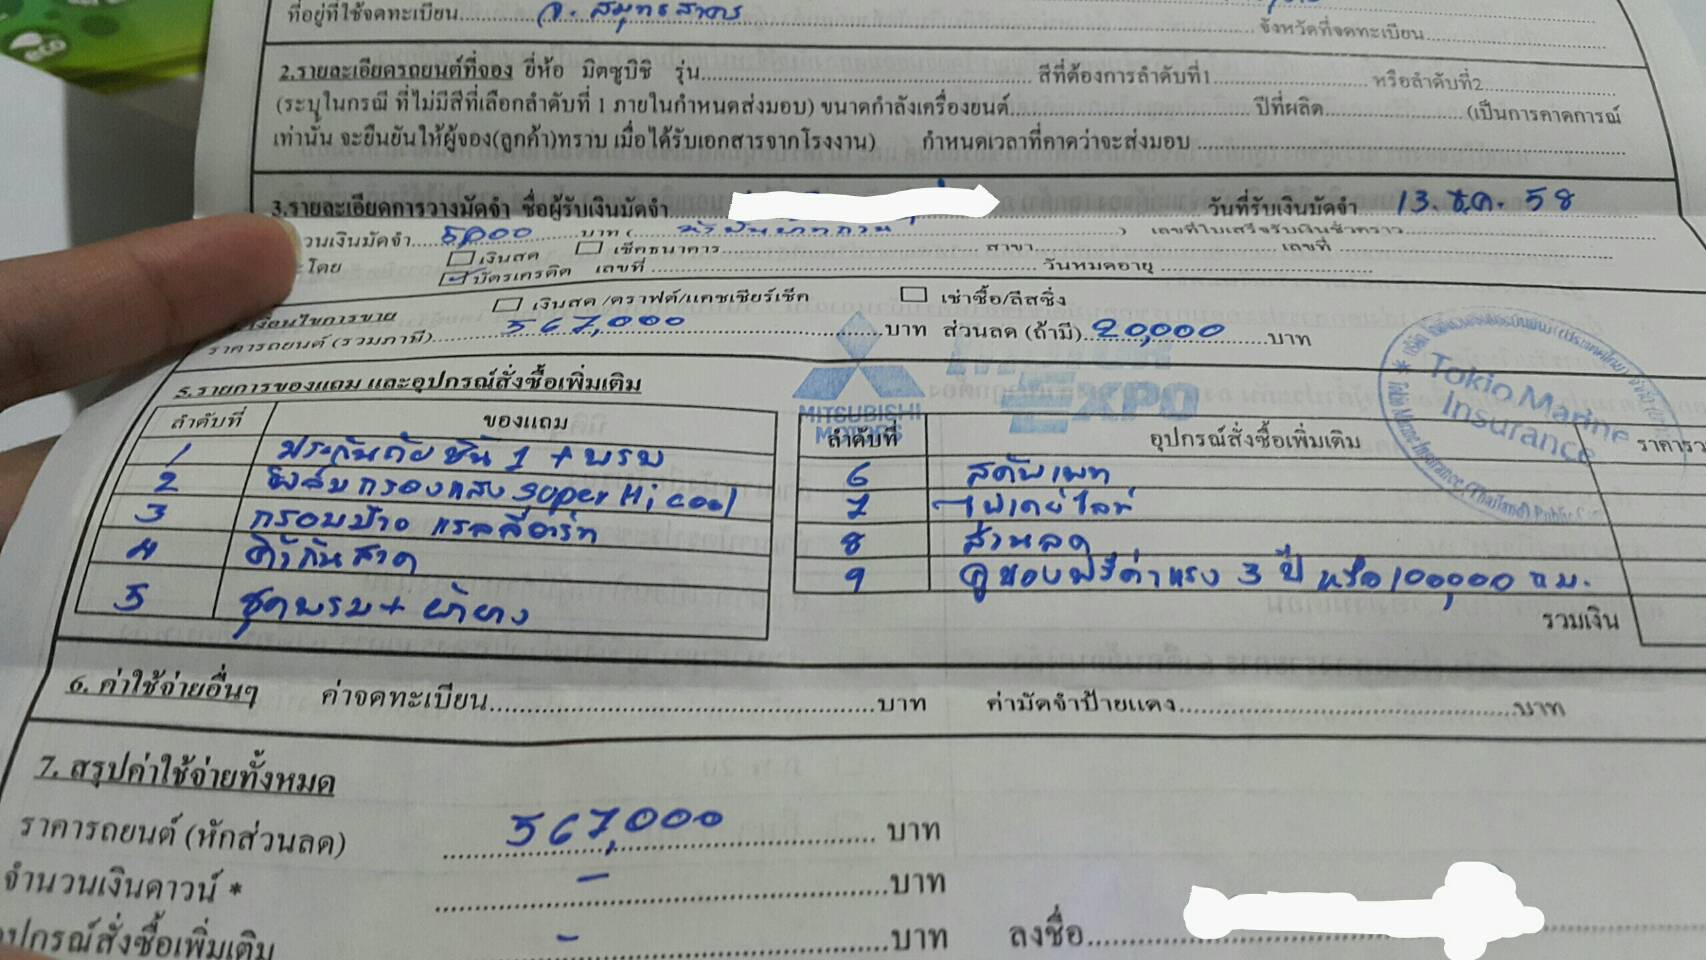 ที่อยู่ที่ใช้จดทะเบียน จ. สมุทรสาคร จังหวัดที่จดทะเบียน
2.รายละเอียดรถยนต์ที่จอง ยี่ห้อ มิตซูบิชิ รุ่น สีที่ต้องการลำดับที่1 หรือลำดับที่2
(ระบุในกรณี ที่ไม่มีสีที่เลือกลำดับที่ 1 ภายในกำหนดส่งมอบ) ขนาดกำลังเครื่องยนต์ ปีที่ผลิต (เป็นการคาดการณ์
เท่านั้น จะยืนยันให้ผู้จอง(ลูกค้า)ทราบ เมื่อได้รับเอกสารจากโรงงาน) กำหนดเวลาที่คาดว่าจะส่งมอบ
3.รายละเอียดการวางมัดจำ ชื่อผู้รับเงินมัดจำ วันที่รับเงินมัดจำ 13. ธ.ค. 58
วนเงินมัดจำ 5,000 บาท ( ห้าพันบาทถ้วน ) เลขที่ใบเสร็จรับเงินชั่วคราว
โดย เงินสด เช็คธนาคาร สาขา เลขที่
บัตรเครดิต เลขที่ วันหมดอายุ
เงื่อนไขการขาย เงินสด /ดราฟต์/แคชเชียร์เช็ค เช่าซื้อ/ลีสซิ่ง
ราคารถยนต์ (รวมภาษี) 567,000 บาท ส่วนลด (ถ้ามี) 20,000 บาท
5.รายการของแถม และอุปกรณ์สั่งซื้อเพิ่มเติม
MITSUBISHI
EXPO
Tokio Marine
Insurance
ลำดับที่ ของแถม
1 ประกันภัยชั้น 1 + พรบ
2 ฟิล์มกรองแสง Super Hi cool
3 กรอบป้าย แรลลี่อาร์ท
4 คิ้วกันสาด
5 ชุดพรม + ผ้ายาง
ลำดับที่ อุปกรณ์สั่งซื้อเพิ่มเติม ราคารว
6 สคัพเพท
7 ไฟเดย์ไลท์
8 ส่วนลด
9 คูปองฟรีค่าแรง 3 ปี หรือ 100,000 ก.ม.
รวมเงิน
6. ค่าใช้จ่ายอื่นๆ ค่าจดทะเบียน บาท ค่ามัดจำป้ายแดง บาท
7. สรุปค่าใช้จ่ายทั้งหมด
ราคารถยนต์ (หักส่วนลด) 567,000 บาท
จำนวนเงินดาวน์ * - บาท
อุปกรณ์สั่งซื้อเพิ่มเติม - บาท ลงชื่อ